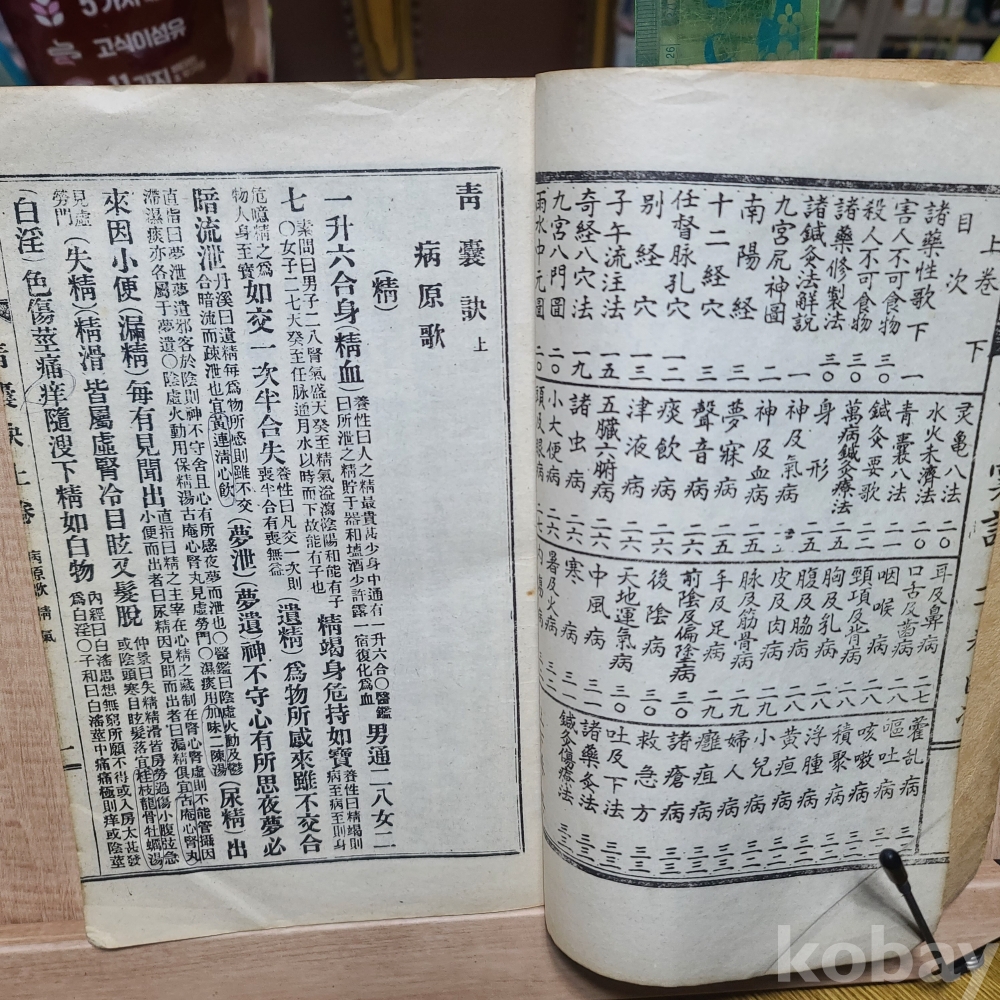 上卷 下
目次
諸藥性歌下 一
害人不可食物 三〇
殺人不可食物 三〇
諸藥修製法 三〇
諸鍼灸法解說 一
九宮尻神圖 一
南陽經 二
十二經穴 三
任督脉孔穴 一二
别經穴 一三
子午流注法 一五
奇經八穴法 一九
九宮八門圖 二〇
雨水中元圖 二〇
灵亀八法 二〇
水火未濟法 二〇
青囊八法 二一
鍼灸要歌 二二
萬病鍼灸療法 二五
身形 二五
神及氣病
神及血病 二五
夢寐病 二六
聲音病 二六
痰飲病 二六
津液病 二六
五臟六腑病 二六
諸虫病 二六
小大便病 二六
頭及眼病 二七
耳及鼻病 二七
口舌及齒病 二八
咽喉病 二八
頸項及背病 二八
胸及乳病 二八
腹及脇病 二八
皮及肉病 二八
脉及筋骨病 二九
手及足病 二九
前陰及偏墜病 三〇
後陰病 三〇
天地運氣病 三一
中風病 三一
寒病
暑及火病
內傷病
霍乱病
嘔吐病
咳嗽病
積聚病
浮腫病
黃疸病
小兒病
婦人病
癰疽病
諸瘡病
救急方
吐及下法
諸藥灸法
鍼灸傷療法
青囊訣 上
病原歌
(精)
一升六合身(精血) 養性曰人之精最貴甚少身中通有一升六合〇醫鑑曰所泄之精貯于器和塩酒少許露一宿復化爲血 男通二八女二
七 素問曰男子二八腎氣盛天癸至精氣溢瀉陰陽和能有子〇女子二七天癸至任脉通月水以時而下故能有子也 精竭身危持如寶 養性曰精竭則病至病至則身
危噫精之爲物人身至寶 如交一次半合失 養性曰凡交一次則喪半合有喪無益 (遺精)爲物所感來雖不交合
暗流泄 丹溪曰遺精每爲物所感則雖不交合暗流而疎泄也宜黃連淸心飮 (夢泄)(夢遺)神不守心有所思夜夢必
直指曰夢泄夢遺邪客於陰則神不守舍且心有所感夜夢而泄也〇醫鑑曰陰虛火動及鬱滯濕痰亦各屬于夢遺〇陰虛火動用保精湯古庵心腎丸見虛勞門〇濕痰用加味二陳湯 (尿精)出
來因小便(漏精)每有見聞出 直指曰精之主宰在心精之藏制在腎心腎虛則不能管攝因小便而出者曰尿精因見聞而出者曰漏精俱宜古庵心腎丸
見虛勞門 (失精)(精滑)皆屬虛腎冷目眩又髮脫 仲景曰失精精滑皆房勞過傷小腹弦急或陰頭寒目眩髮落宜桂枝龍骨牡蠣湯
(白淫)色傷莖痛痒隨溲下精如白物 內經曰白淫思想無窮所願不得或入房太甚發爲白淫〇子和曰白淫莖中痛痛極則痒或陰莖
青囊訣上卷 病原歌 精 氣 一
고식이섬유
kobay